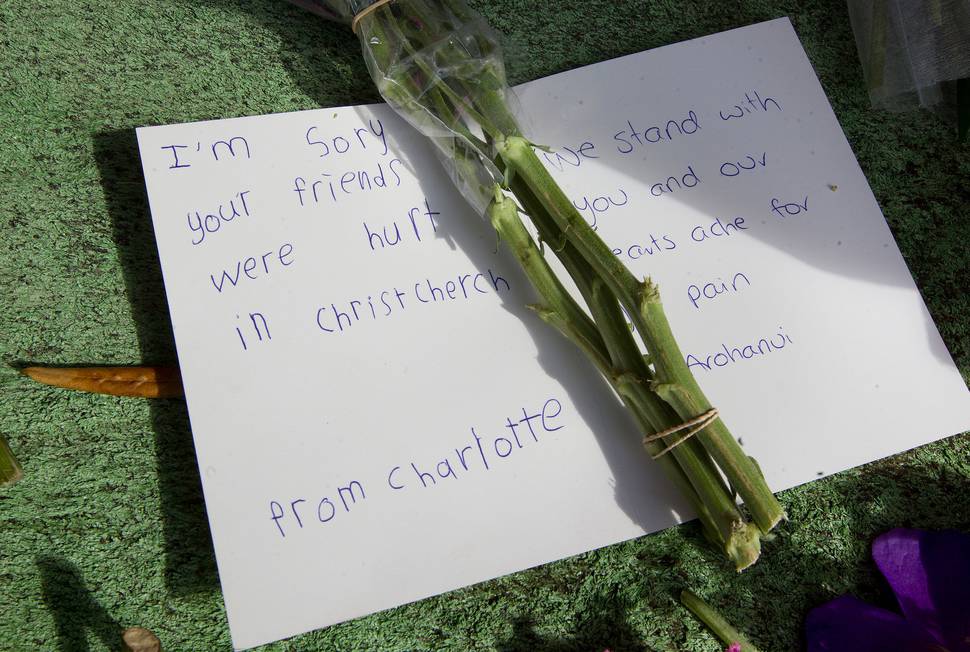 I'm Sory
your friends
were hurt
in christcherch
from charlotte
We stand with
you and our
earts ache for
pain
Arohanui